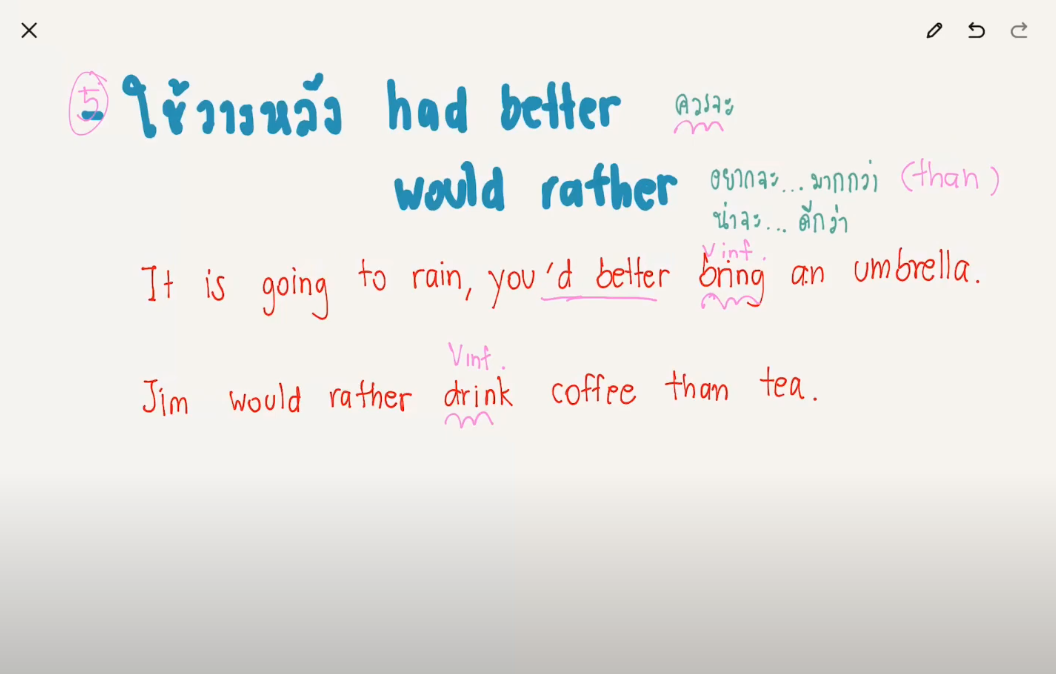 5 - ใช้วางหลัง had better ควรจะ
would rather อยากจะ... มากกว่า (than)
น่าจะ... ดีกว่า
Vinf.
It is going to rain, you'd better bring an umbrella.
Vinf.
Jim would rather drink coffee than tea.